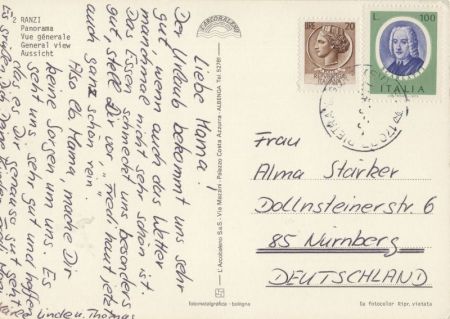 2 RANZI
Panorama
Vue générale
General view
Aussicht
Liebe Mama!
Der Urlaub bekommt uns sehr
gut, wenn auch das Wetter
manchmal nicht sehr schön ist.
Das Essen schmeckt uns besonders
gut, stell Dir vor, Fredi haut jetzt
auch ganz schön rein.
Also lb. Mama, mache Dir
keine Sorgen um uns. Es
geht uns sehr gut und hoffen
das es Dir genau so gut geht.
Es grüßen Dich Deine
Linden, Thomas
L'Arcobaleno S.a.S. - Via Mazzini - Palazzo Costa Azzurra - ALBENGA Tel. 52781
fotometalgrafica - bologna
20
L. 100
ITALIA
Frau
Alma Stärker
Dollnsteinerstr. 6
85 Nürnberg
DEUTSCHLAND
Da fotocolor Ripr. vietata